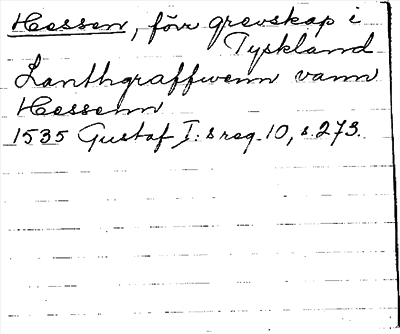 Hessen, förr grevskap i
Tyskland
Lanthgraffwenn vann
Hessenn
1535 Gustaf I:s reg. 10, s. 273.